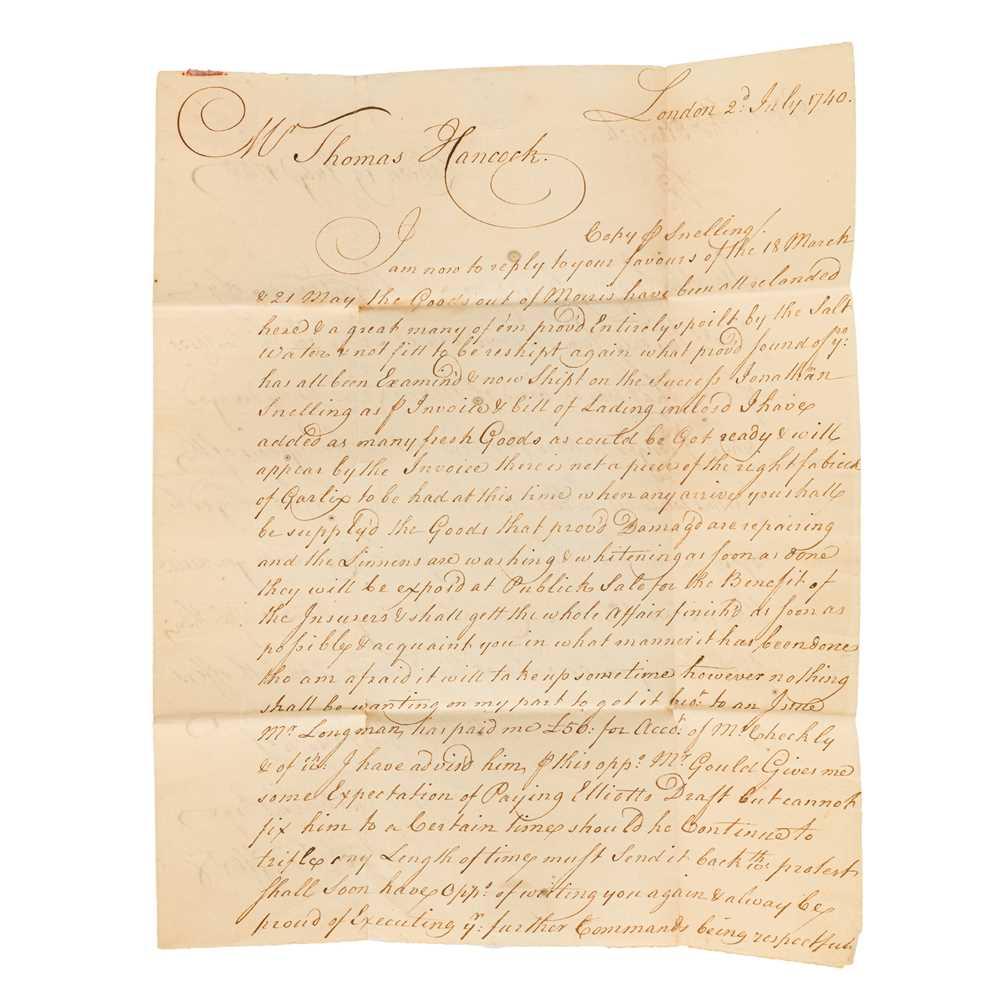 London 2d July 1740.
Mr Thomas Hancock.
Copy ⅌ Snelling/.
I am now to reply to your favours of the 18 March
& 21 May the Goods out of Morris have been all relanded
here & a great many of 'em prov'd Entirely spoilt by the Salt
Water & not fitt to be reshipt again what prov'd sound of ym:
has all been Examin'd & now Shipt on the Success Jonathan
Snelling as ⅌ Invoice & bill of Lading inclosd I have
added as many fresh Goods as could be Got ready & will
appear by the Invoice there is not a piece of the right fabrick
of Garlix to be had at this time when any arrive you shall
be supply'd the Goods that prov'd Damag'd are repairing
and the Linnens are washing & whitening as soon as done
they will be expos'd at Publick Sale for the Benefit of
the Insurers & shall gett the whole Affair finish'd as soon as
possible & acquaint you in what manner it has been done
tho am afraid it will take up some time however nothing
shall be wanting on my part to get it to an Issue
Mr. Longman has paid me £50: for Accot. of Mr. Checkly
& of it: I have advis'd him ⅌ this oppy. Mr. Gould Gives me
some Expectation of Paying Elliotts Draft but cannot
fix him to a Certain time should he Continue to
trifle any Length of time must Send it back protest
shall Soon have Oppy. of writing you again & alway be
proud of Executing yr: further Commands being respectfull